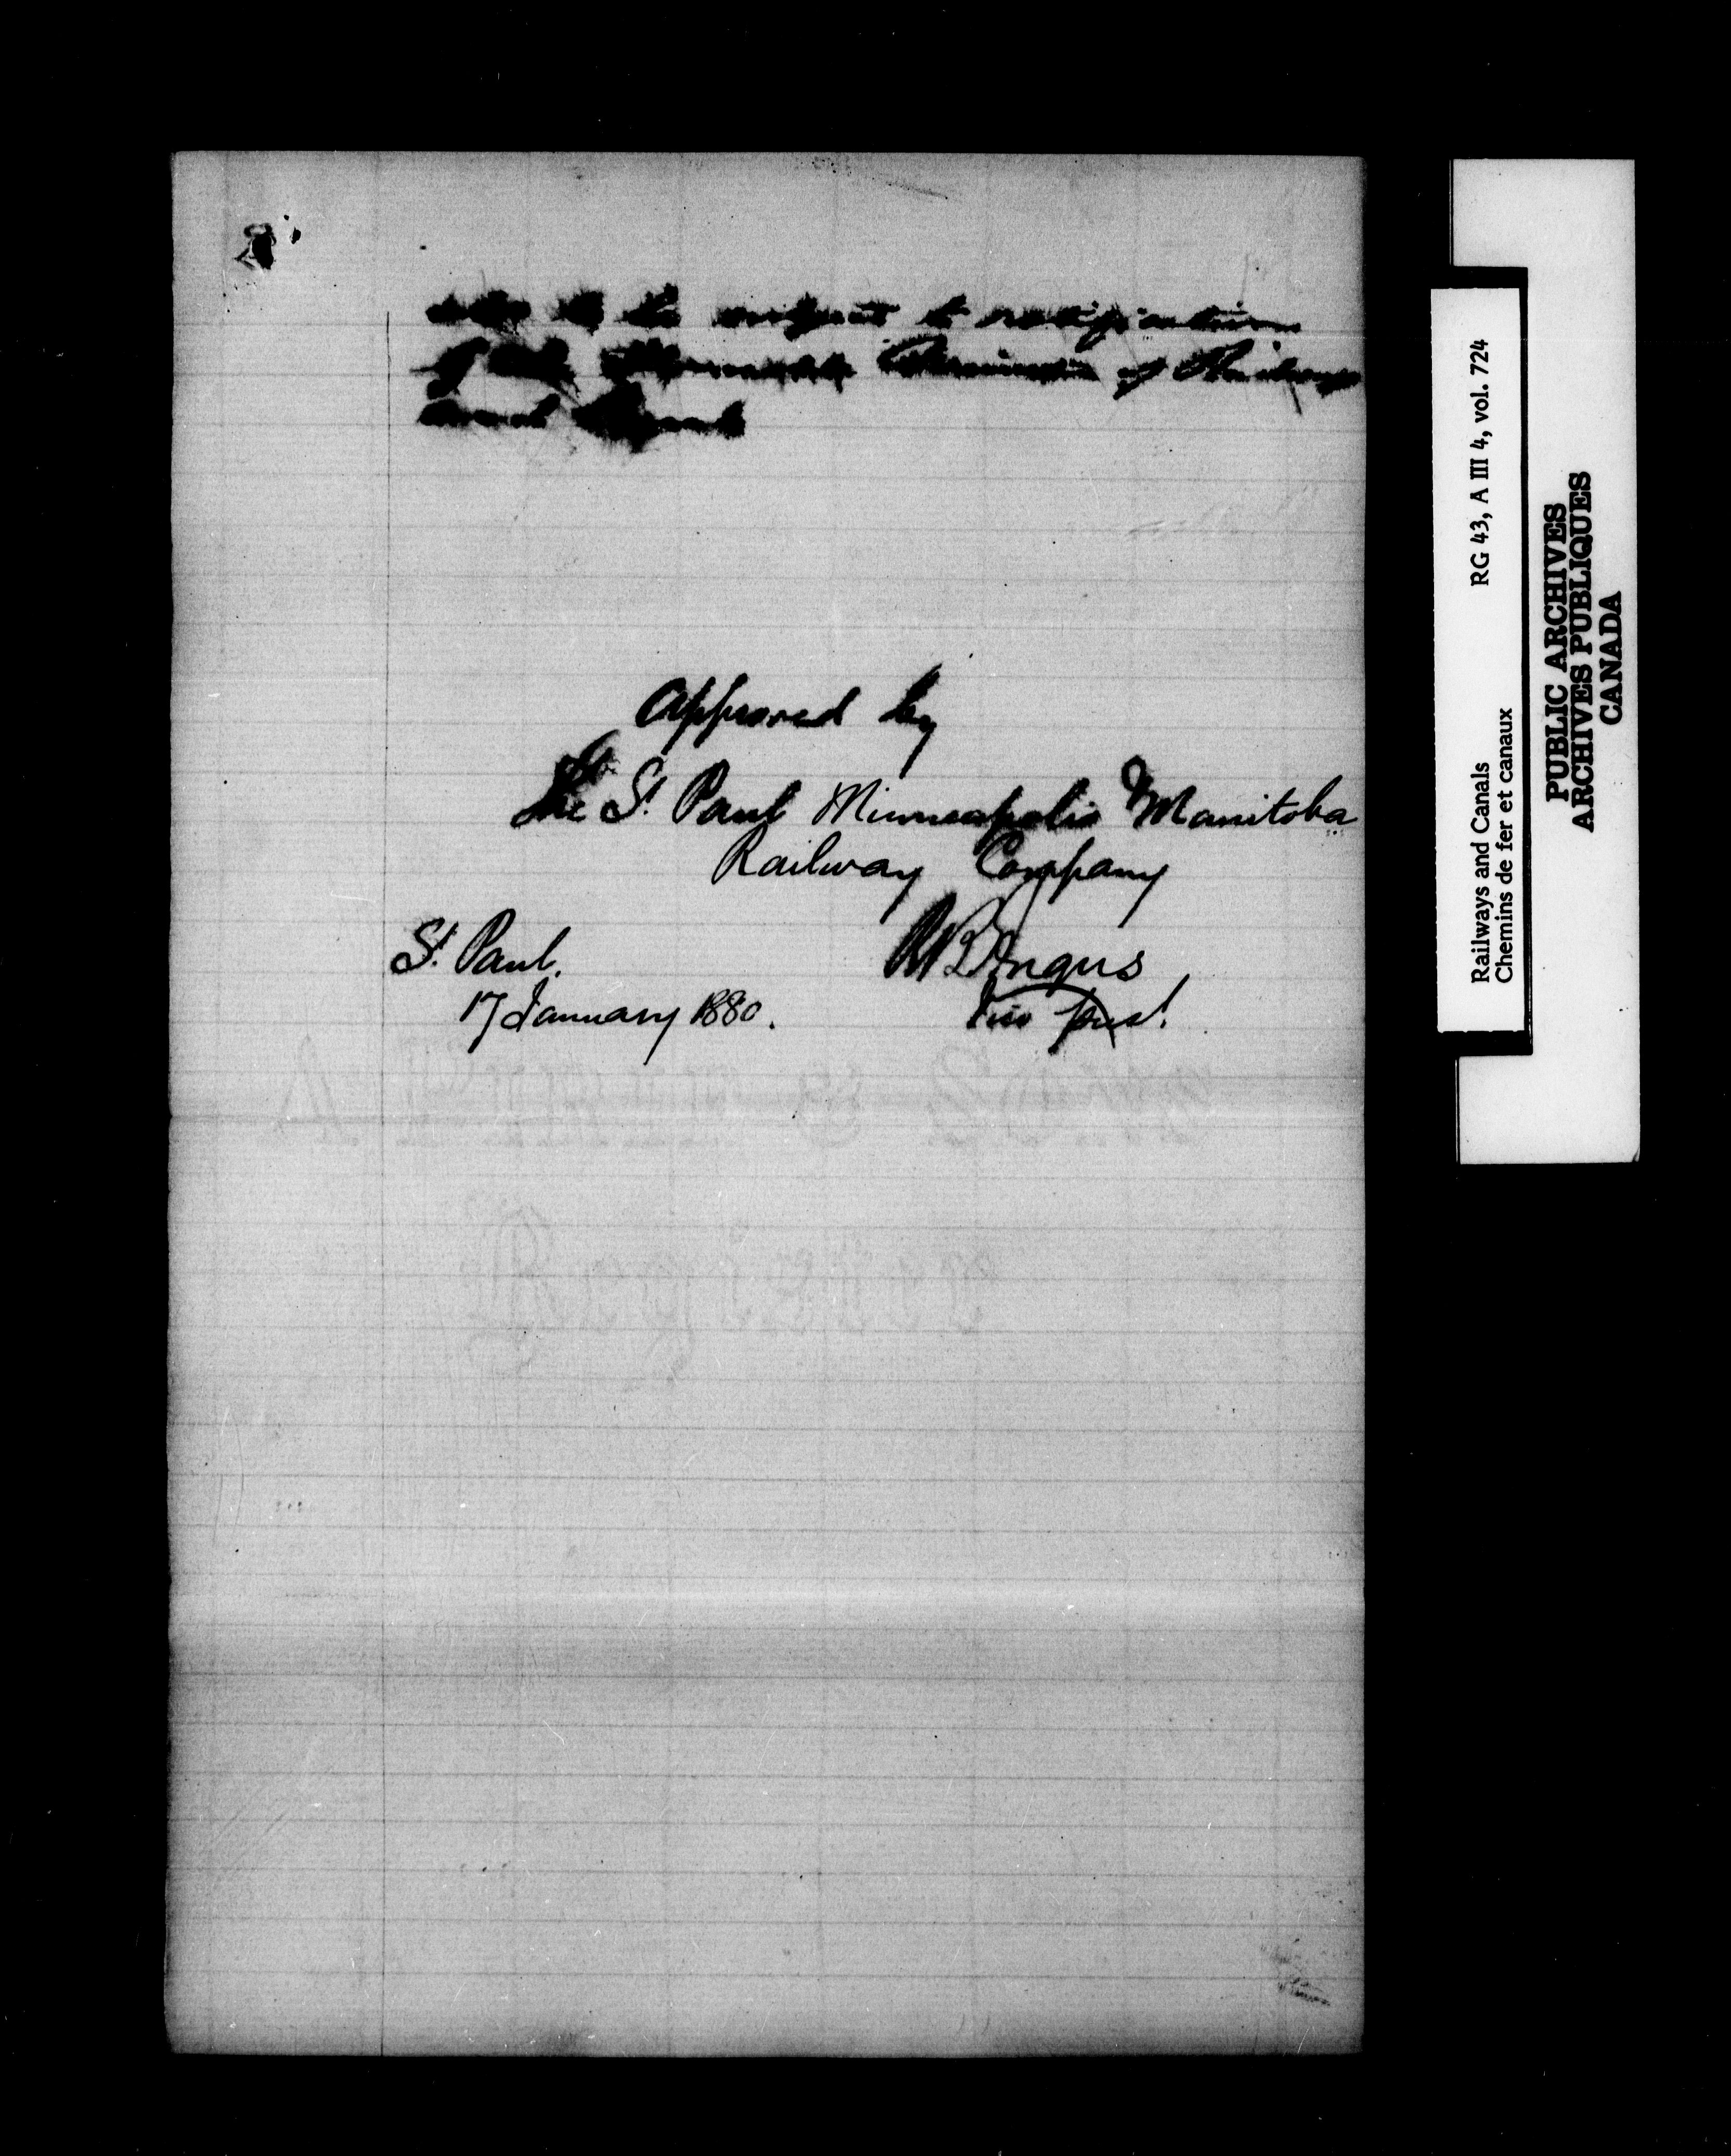 to be subject to ratification
of the Honourable Minister of Railways
and Canals
Approved by
The St. Paul Minneapolis & Manitoba
Railway Company
St. Paul.
17 January 1880.
RB Angus
Vice prest.
Railways and Canals RG 43, A III 4, vol. 724
Chemins de fer et canaux
PUBLIC ARCHIVES
ARCHIVES PUBLIQUES
CANADA